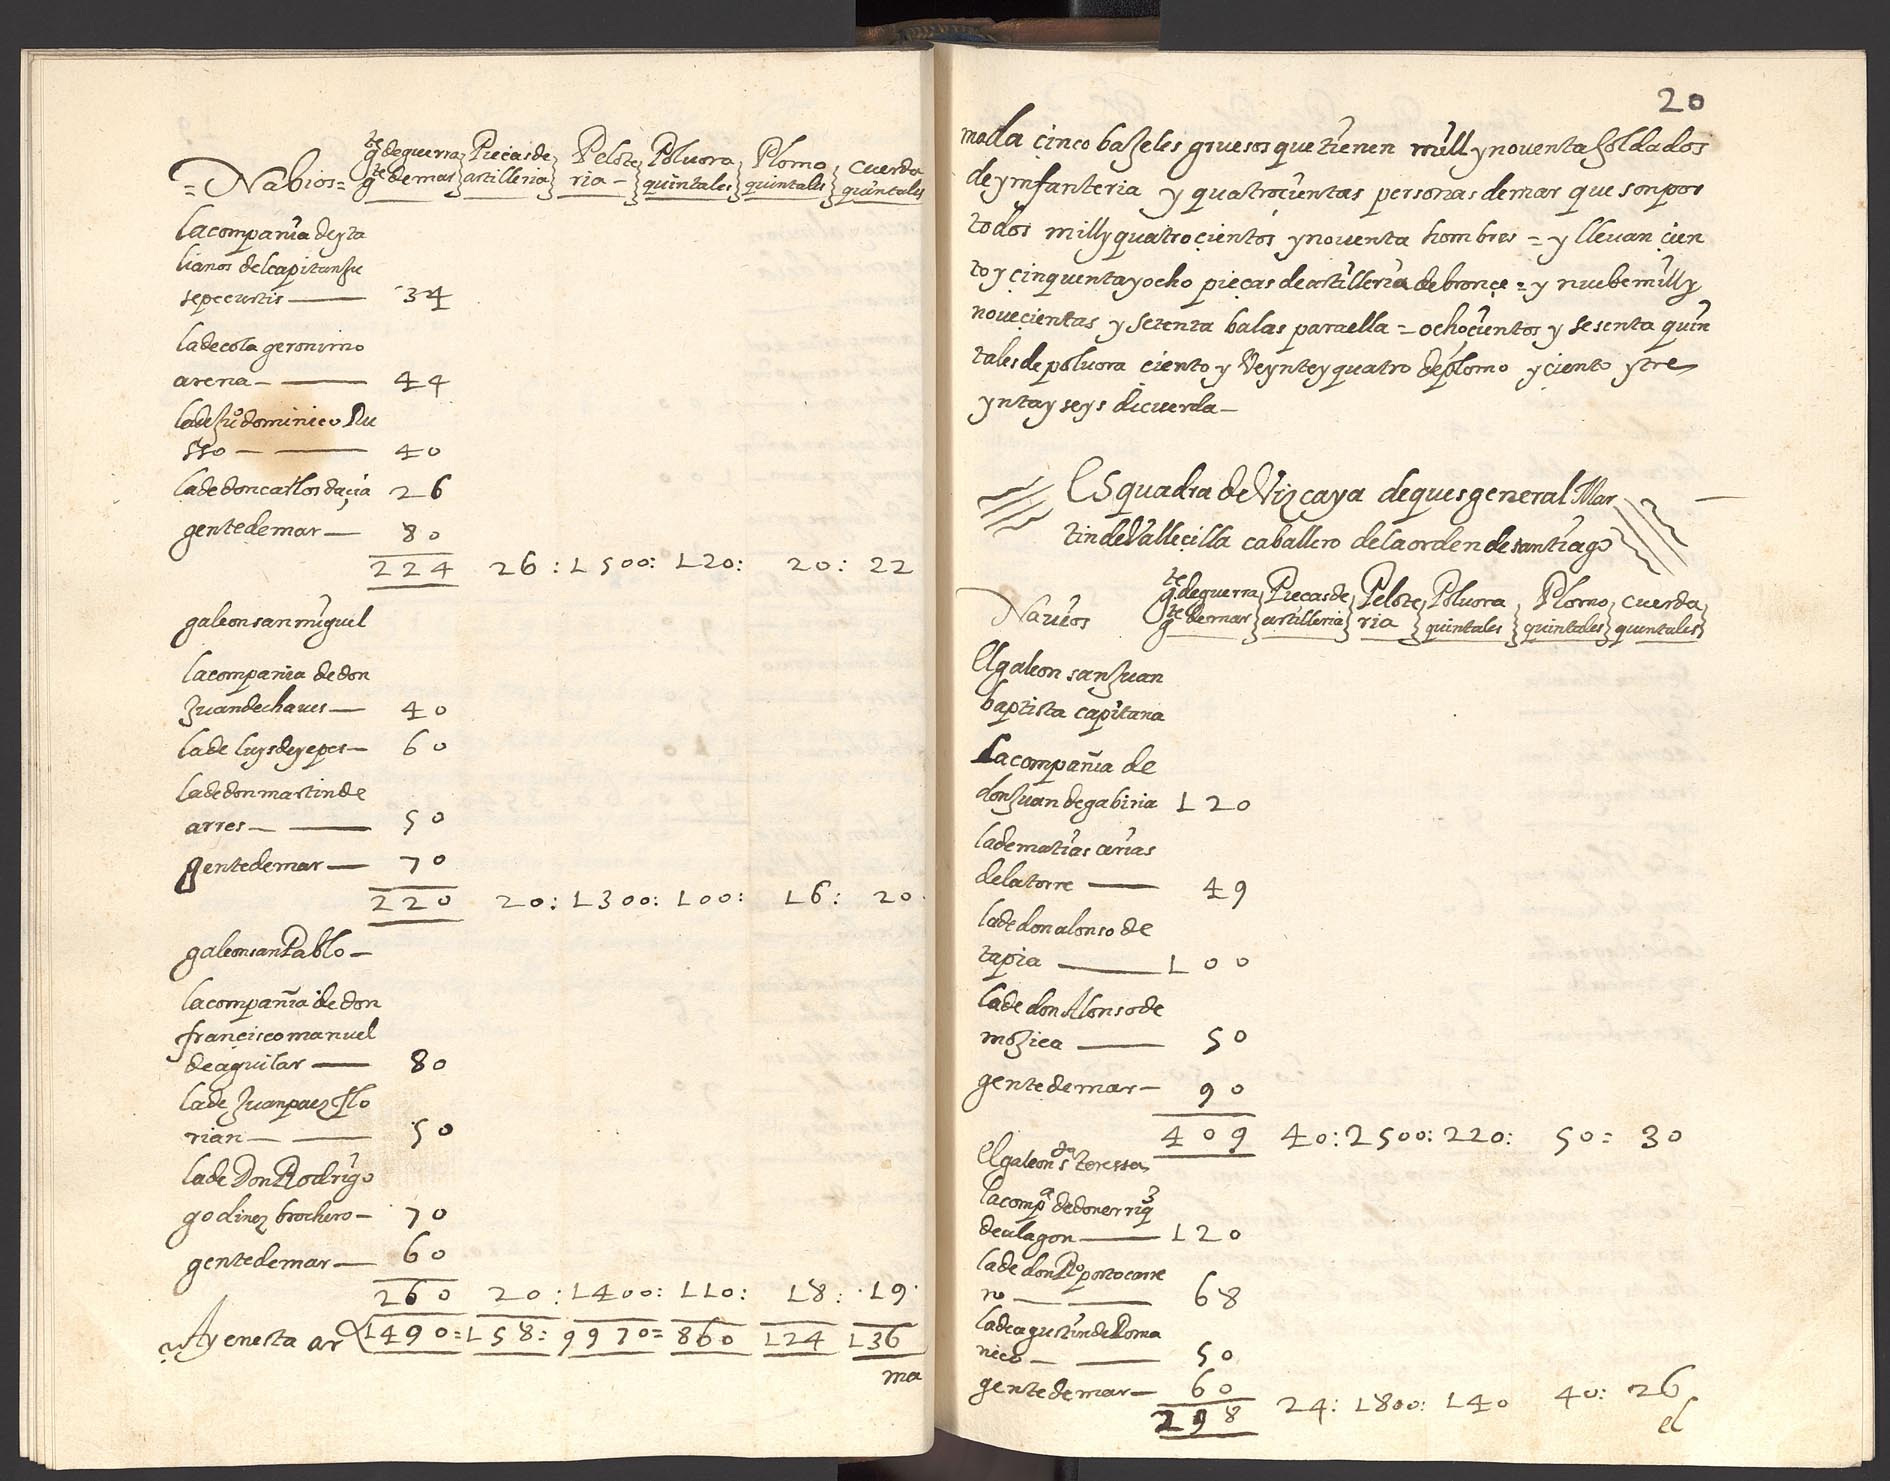 =Nabios= gte deguerra Pieças de Pelote Poluora Plomo cuerda
gte demar artilleria ria- quintales quintales quintales
la compañia de yta
lianos del capitan Ju
sepe curtis — 34
la de cola geronimo
arena — 44
la de Juo dominico Ru
sso — 40
la de don carlos daçia 26
gente de mar — 80
224 26 : 1500: 120: 20: 22
galeon san miguel
la compania de don
Juan de chaues — 40
la de luys de yepes — 60
la de don martin de
arres — 50
gente de mar — 70
220 20: 1300: 100: 16: 20
galeon san Pablo —
la compañia de don
francisco manuel
de aguilar — 80
la de Juan paez flo
rian — 50
la de Don Rodrigo
godinez brochero — 70
gente de mar — 60
260 20 : 1400: 110: 18: 19
Ay en esta ar 1490= 158= 9970= 860 124 136
ma
20
mada çinco baxeles gruesos que tienen mill y noventa soldados
de ynfanteria y quatroçientas personas de mar que son por
todos mill y quatroçientos y noventa hombres = y llevan çien
to y çinquenta y ocho pieças de artilleria de bronçe = y nuebe mill y
noueçientas y setenta balas para ella = ochoçientos y sesenta quin
tales de poluora ciento y Veynte y quatro de plomo y çiento y tre
ynta y seys de cuerda —
Esquadra de Vizcaya de que es general Mar
tin de Valleçilla caballero de la orden de santiago
Nauios gte de guerra Pieças de Pelote Poluora Plomo cuerda
gte de mar artilleria ria quintales quintales quintales
El galeon san Juan
baptista capitana
La compañia de
don Juan de gabiria 120
la de matias arias
de la torre — 49
la de don alonso de
tapia — 100
la de don Alonso de
moxica — 50
gente de mar — 90
409 40: 2500: 220: 50: 30
El galeon sta teressa
la compa de don enrriq
de alagon — 120
la de don Ro portocarre
ro — 68
la de agustin de Roma
nico — 50
gente de mar — 60
298 24: 1800: 140 40: 26
el